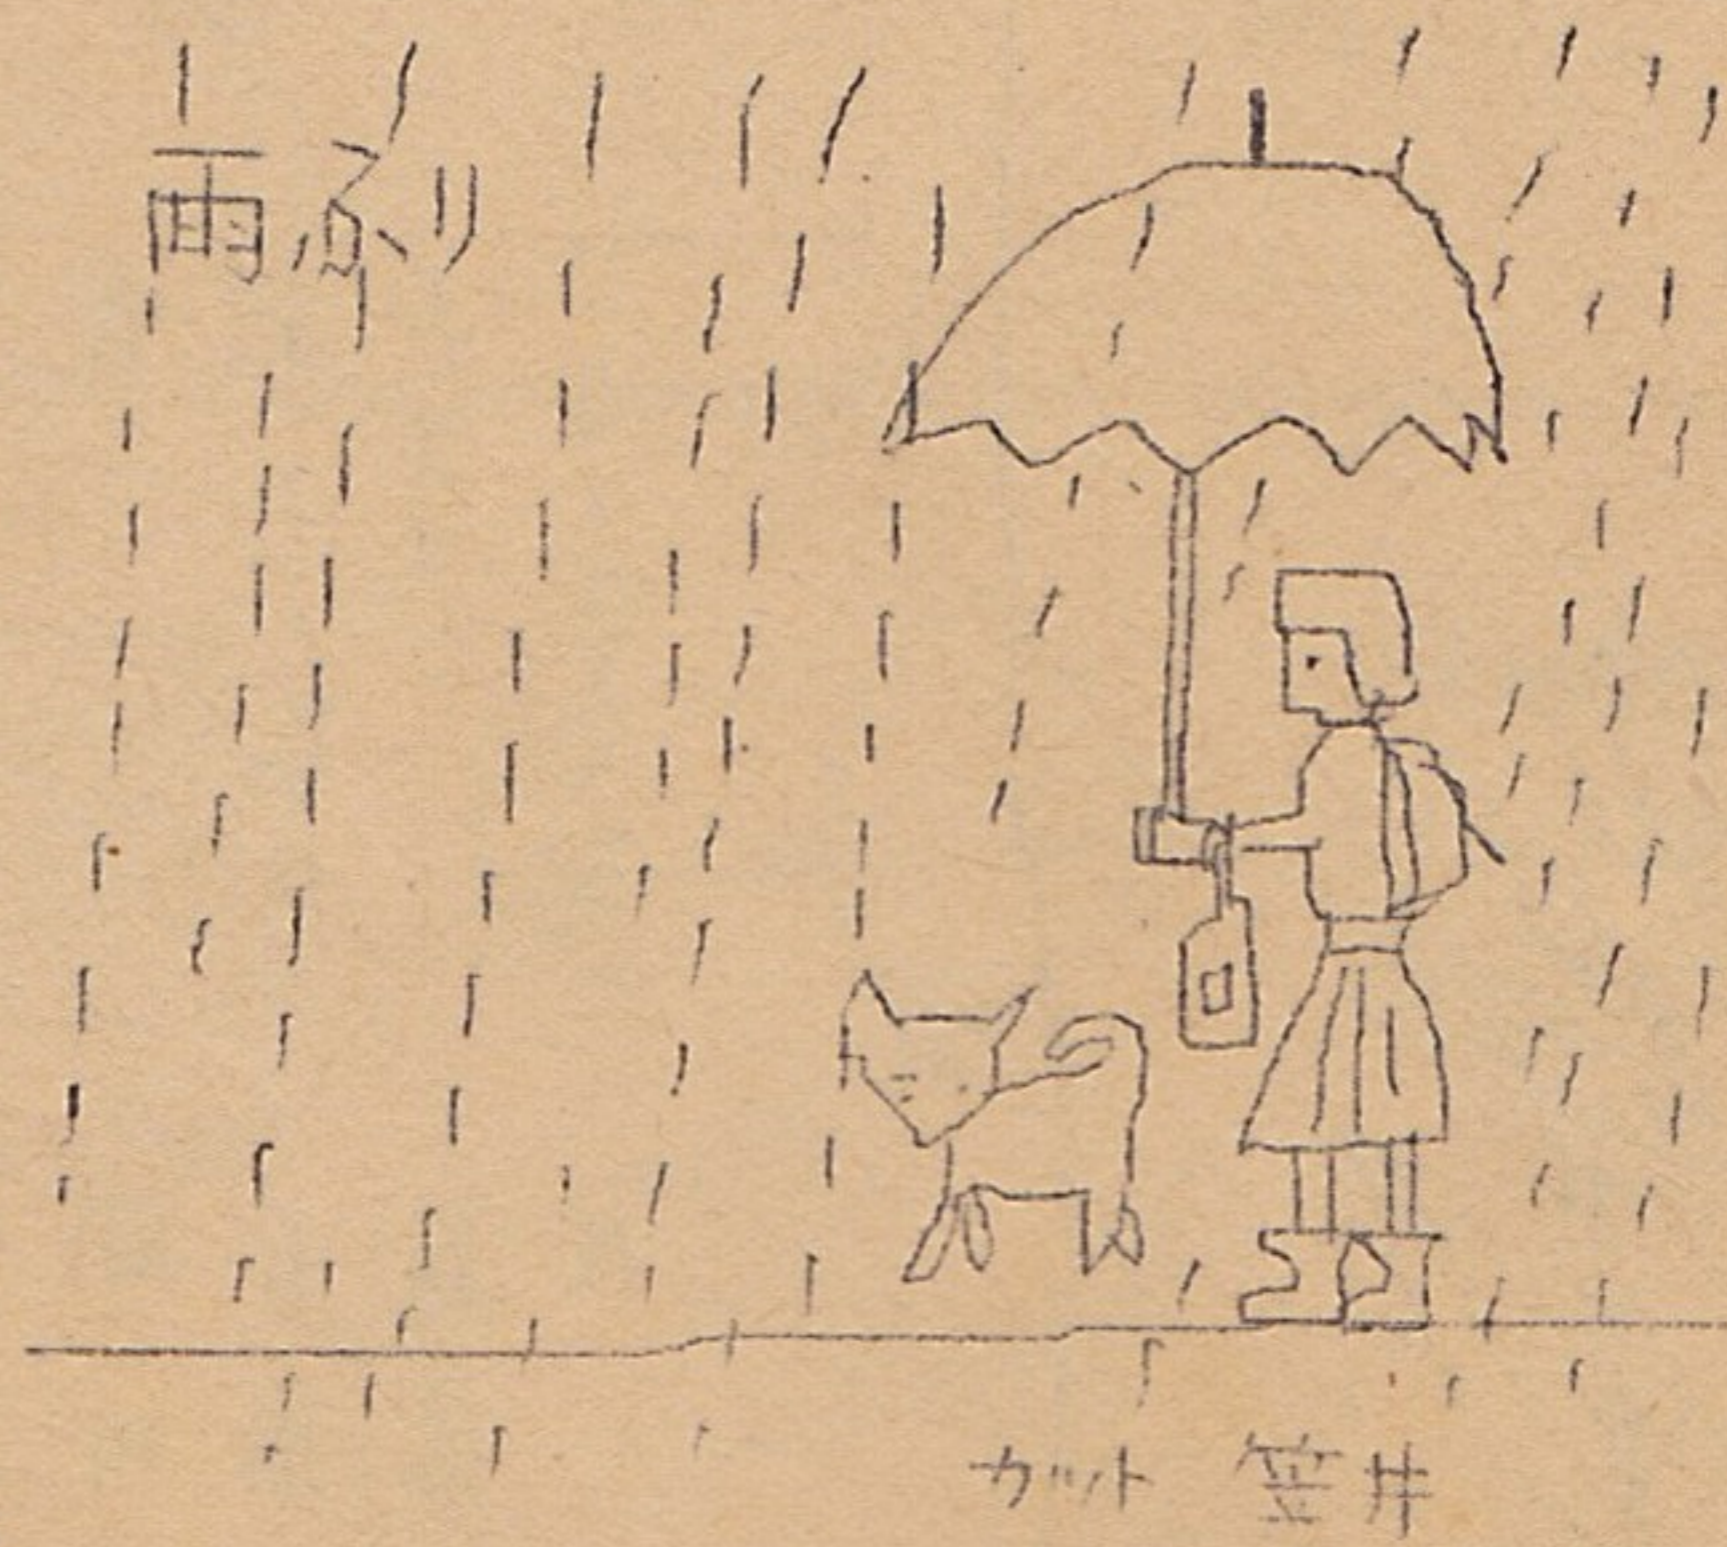 雨ふり
カット 笠井